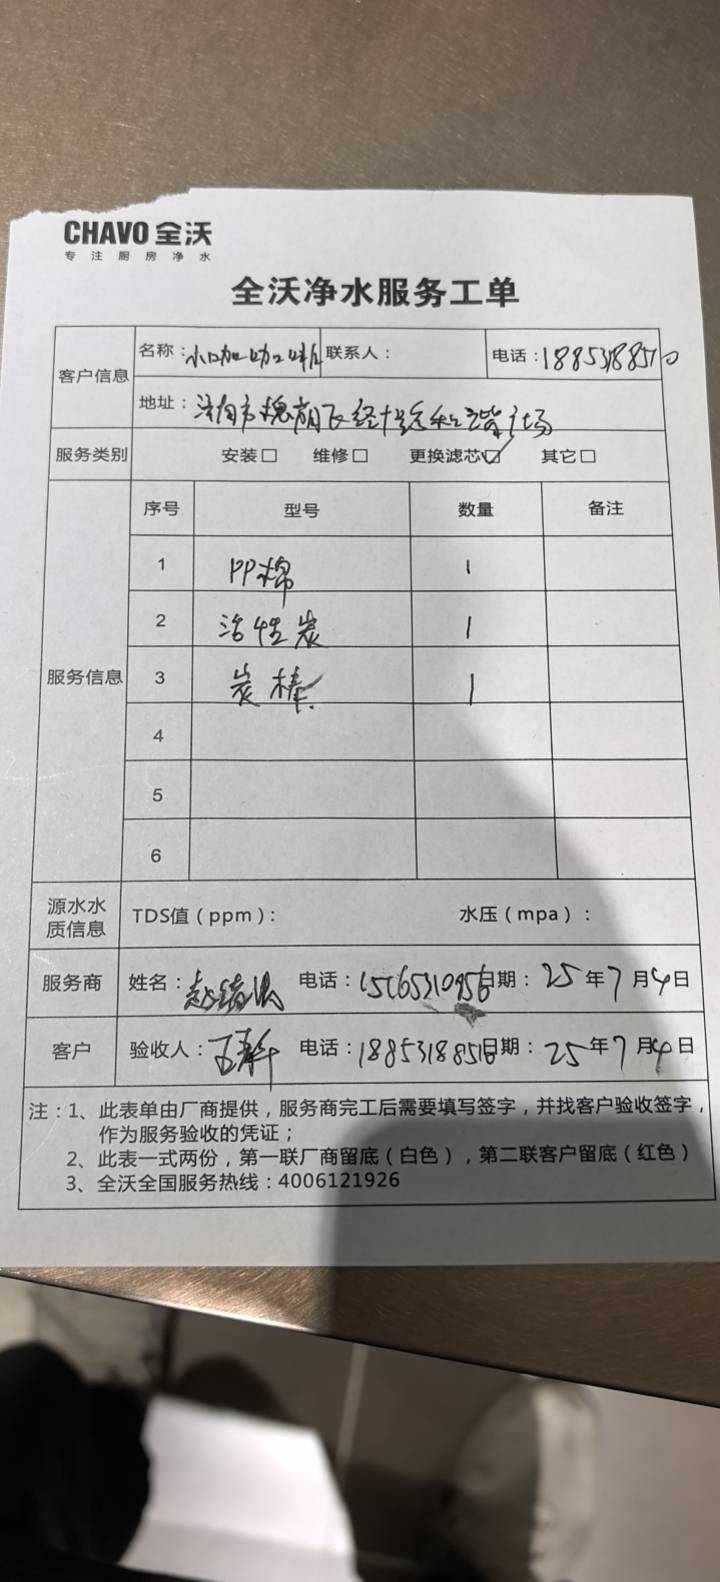 CHAVO 全沃
专注厨房净水
全沃净水服务工单
客户信息
名称: 联系人: 电话:
地址: 济南市槐荫区经十路和谐广场
服务类别 安装□ 维修□ 更换滤芯☑ 其它□
服务信息
序号 型号 数量 备注
1 PP棉 1
2 活性炭 1
3 炭棒 1
4
5
6
源水水质信息 TDS值(ppm): 水压(mpa):
服务商 姓名: 电话: 日期: 25年7月4日
客户 验收人: 电话: 日期: 25年7月4日
注:1、此表单由厂商提供,服务商完工后需要填写签字,并找客户验收签字,
作为服务验收的凭证;
2、此表一式两份,第一联厂商留底(白色),第二联客户留底(红色)
3、全沃全国服务热线:4006121926